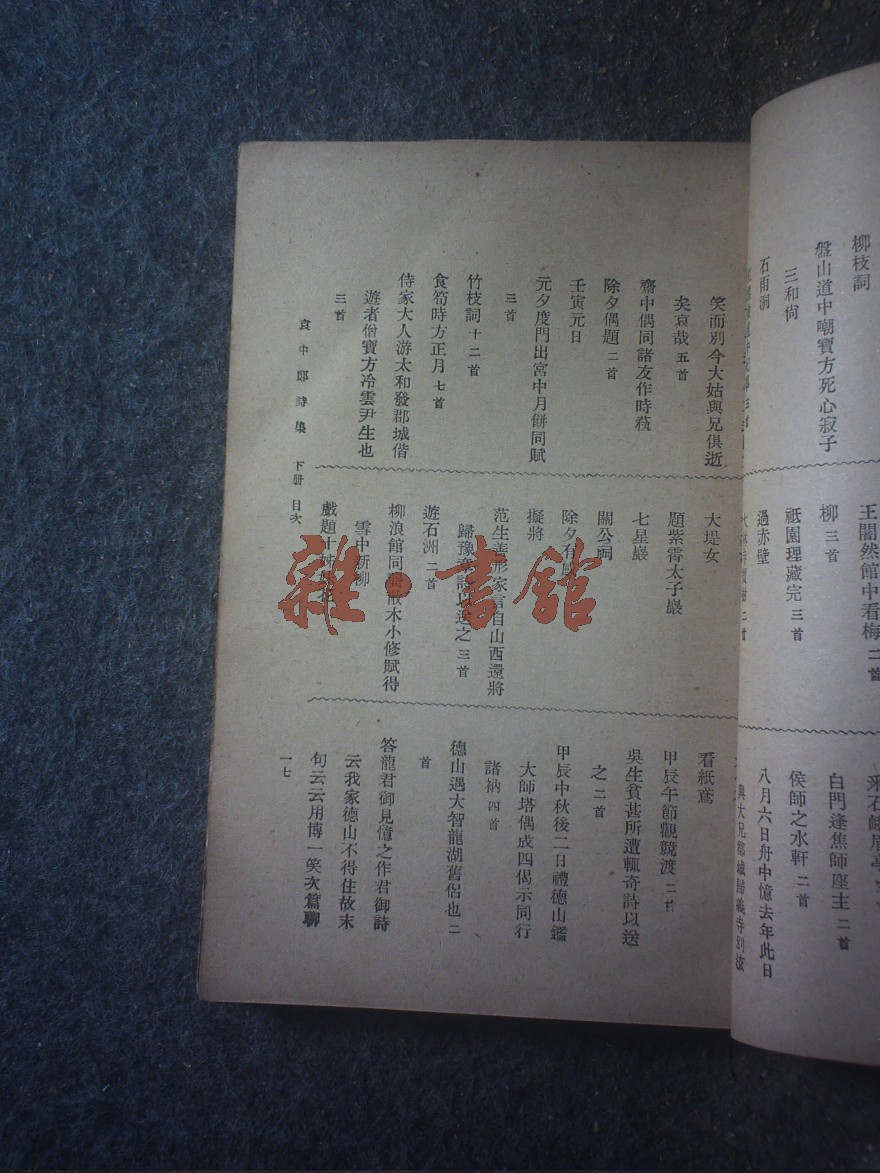 柳枝詞
盤山道中嘲寶方死心寂子
三和尙
石雨洞
王闇然館中看梅 二首
柳 三首
祇園理藏完 三首
過赤壁
白門逢焦師座主 二首
侯師之水軒 二首
八月六日舟中憶去年此日
與大兄都城
笑而別今大姑與兄俱逝
矣哀哉 五首
齋中偶同諸友作時萟
除夕偶題 二首
壬寅元日
元夕度門出宮中月餅同賦
三首
竹枝詞 十二首
食筍時方正月 七首
侍家大人游太和發郡城偕
遊者僧寶方冷雲尹生也
三首
大堤女
題紫霄太子巖
七星巖
關公祠
除夕有
擬將
范生善形家言自山西還將
歸豫章 以送之 三首
遊石洲 二首
柳浪館同 散木小修賦得
雪中新柳
戲題十姊
看紙鳶
甲辰午節觀競渡 二
吳生貧甚所遭輒奇詩以送
之 二首
甲辰中秋後二日禮德山鑑
大師塔偶成四偈示同行
諸衲 四首
德山遇大智龍湖舊侶也 二
首
答龍君御見憶之作君御詩
云我家德山不得住故末
句云云用博一笑次篇聊
袁中郎詩集 下册 目次
一七
雜·書館